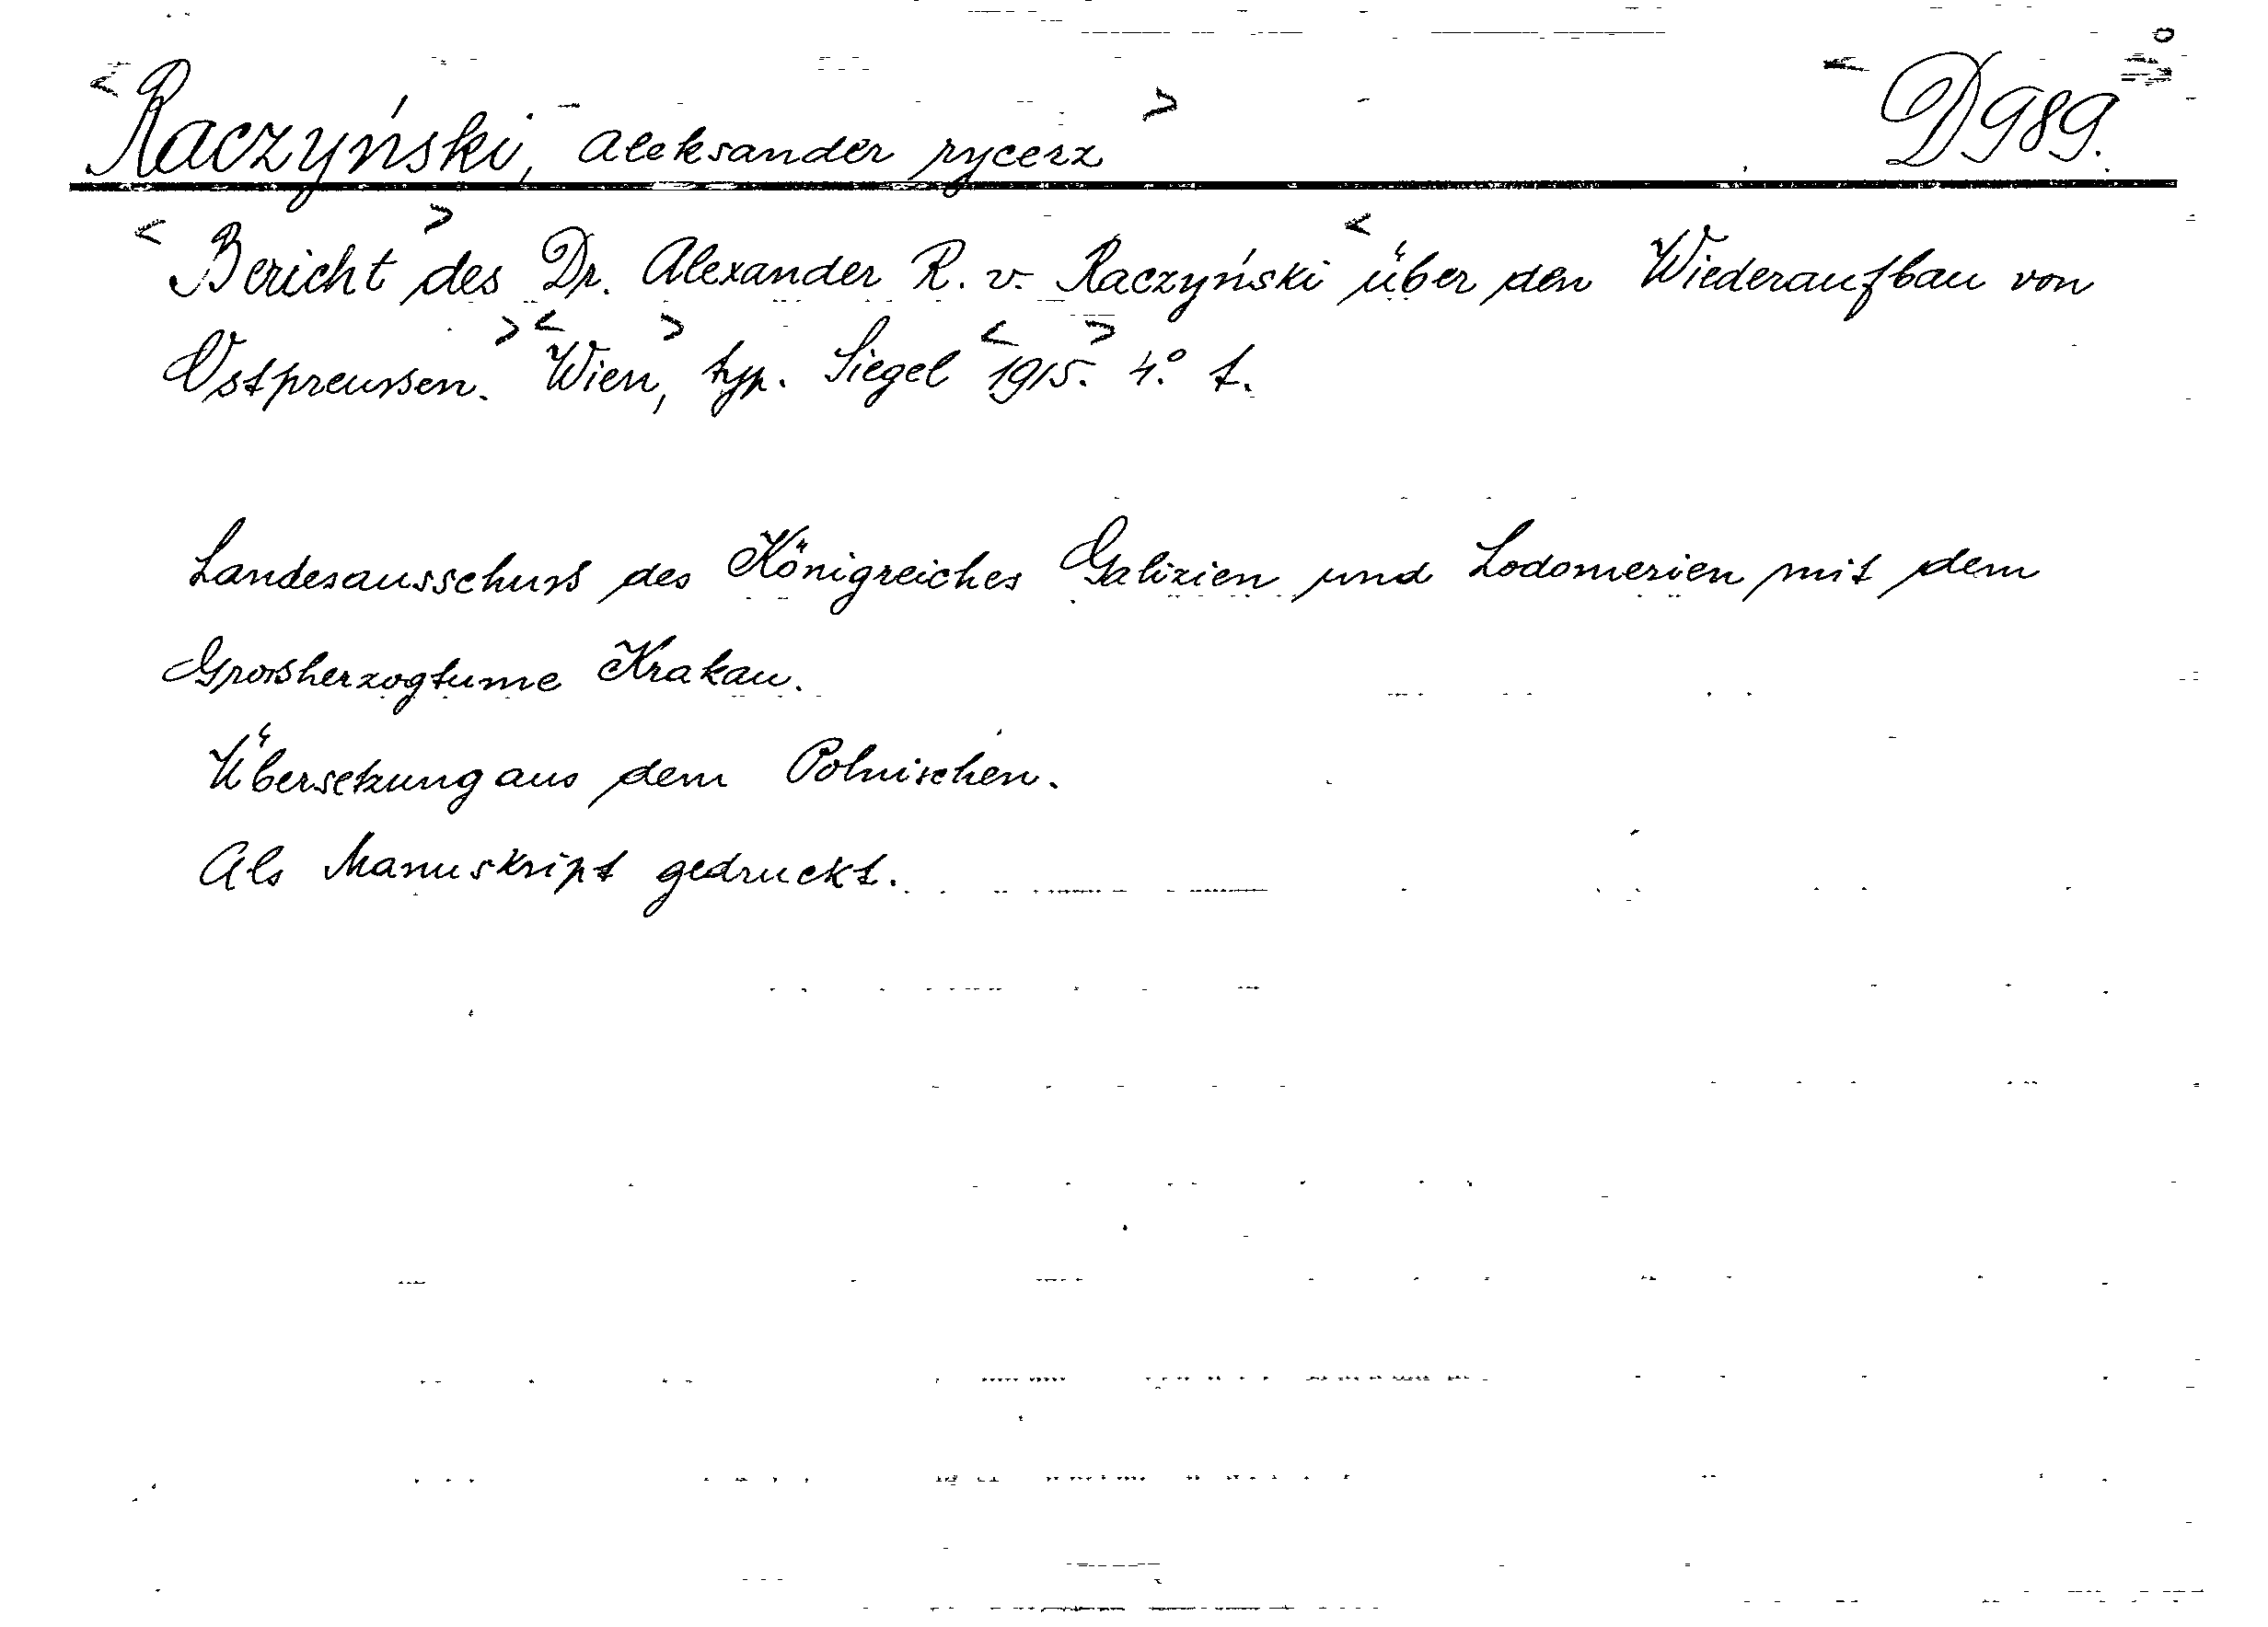 <Raczyński, Aleksander rycerz> <D989.
<Bericht> des Dr. Alexander R. v. Raczyński <über den Wiederaufbau von
Ostpreussen.> <Wien,> typ. Siegel <1915.> 4.° t.
Landesausschuss des Königreiches Galizien und Lodomerien mit dem
Grossherzogtume Krakau.
Übersetzung aus dem Polnischen.
Als Manuskript gedruckt.